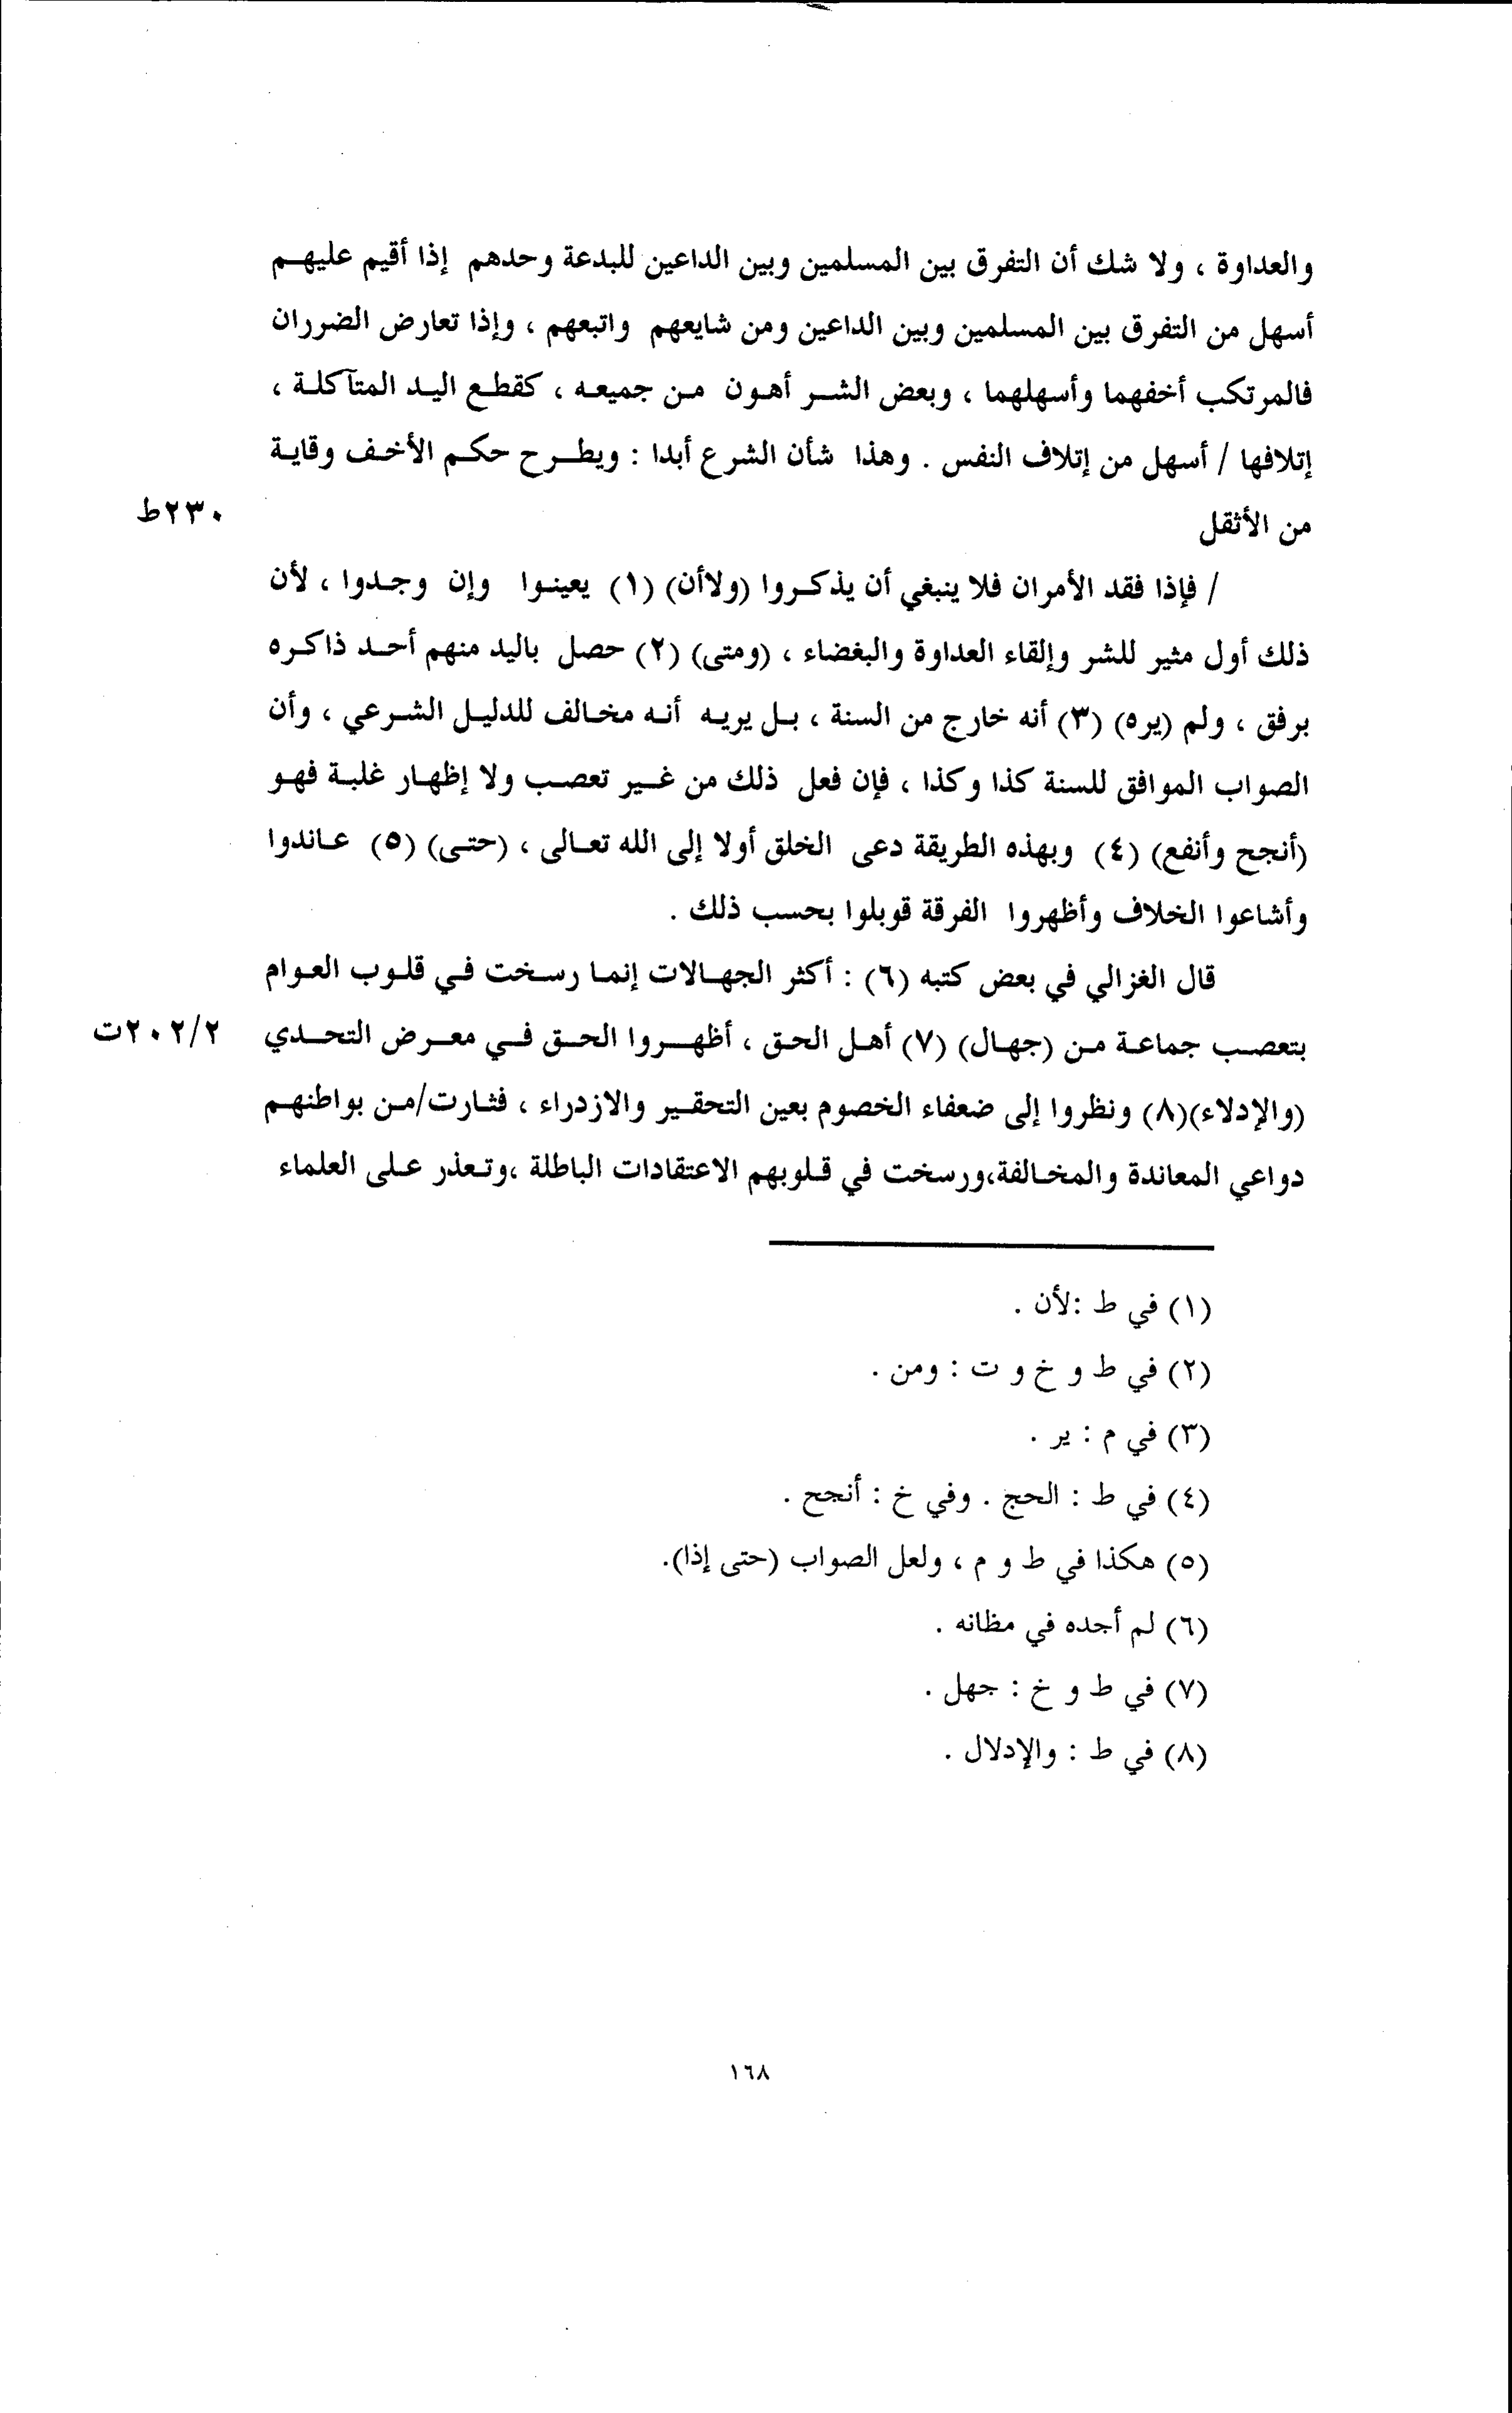 والعداوة ، ولا شك أن التفرق بين المسلمين وبين الداعين للبدعة وحدهم إذا أقيم عليهم
أسهل من التفرق بين المسلمين وبين الداعين ومن شايعهم واتبعهم ، وإذا تعارض الضرران
فالمرتكب أخفهما وأسهلهما ، وبعض الشر أهون من جميعه ، كقطع اليد المتآكلة ،
إتلافها / أسهل من إتلاف النفس . وهذا شأن الشرع أبدا : ويطرح حكم الأخف وقاية
من الأثقل
٢٣٠ط
/ فإذا فقد الأمران فلا ينبغي أن يذكروا (ولاأن) (١) يعينوا وإن وجدوا ، لأن
ذلك أول مثير للشر وإلقاء العداوة والبغضاء ، (ومتى) (٢) حصل باليد منهم أحد ذاكره
برفق ، ولم (يره) (٣) أنه خارج من السنة ، بل يريه أنه مخالف للدليل الشرعي ، وأن
الصواب الموافق للسنة كذا وكذا ، فإن فعل ذلك من غير تعصب ولا إظهار غلبة فهو
(أنجح وأنفع) (٤) وبهذه الطريقة دعى الخلق أولا إلى الله تعالى ، (حتى) (٥) عاندوا
وأشاعوا الخلاف وأظهروا الفرقة قوبلوا بحسب ذلك .
قال الغزالي في بعض كتبه (٦) : أكثر الجهالات إنما رسخت في قلوب العوام
بتعصب جماعة من (جهال) (٧) أهل الحق ، أظهروا الحق في معرض التحدي
٢٠٢/٢ت
(والإدلاء)(٨) ونظروا إلى ضعفاء الخصوم بعين التحقير والازدراء ، فثارت/من بواطنهم
دواعي المعاندة والمخالفة،ورسخت في قلوبهم الاعتقادات الباطلة ،وتعذر على العلماء
(١) في ط :لأن .
(٢) في ط و خ و ت : ومن .
(٣) في م : ير .
(٤) في ط : الحج . وفي خ : أنجح .
(٥) هكذا في ط و م ، ولعل الصواب (حتى إذا).
(٦) لم أجده في مظانه .
(٧) في ط و خ : جهل .
(٨) في ط : والإدلال .
١٦٨